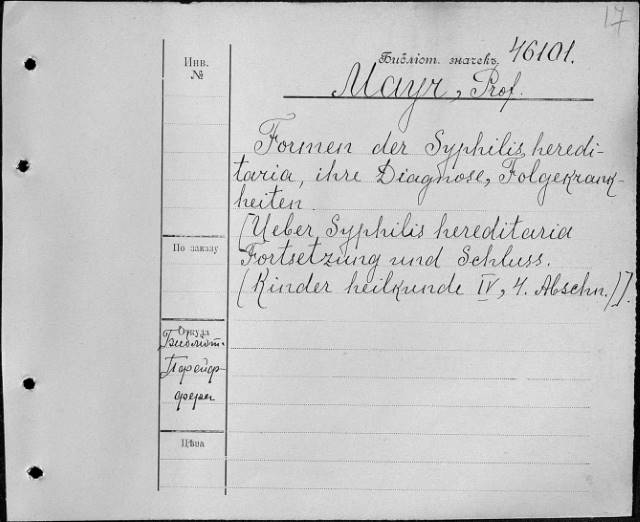 17
Инв.
№
Библіот. значекъ 46101.
Mayr, Prof.
Formen der Syphilis heredi-
taria, ihre Diagnose, Folgekrank-
heiten.
[Ueber Syphilis hereditaria
Fortsetzung und Schluss.
(Kinder heilkunde IV, 4. Abschn.)].
По заказу
Откуда
Библіот.
Пфейф-
фера
Цѣна